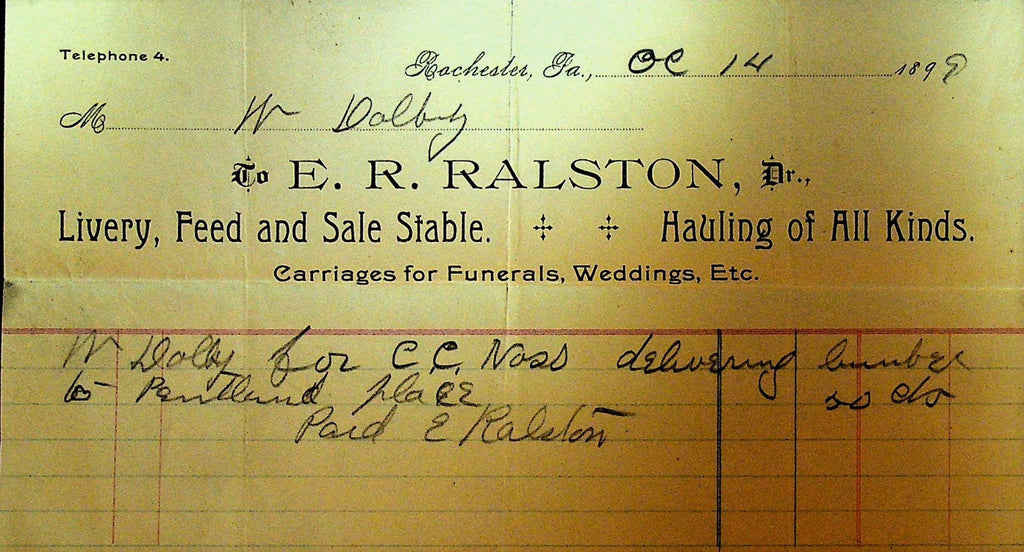 Telephone 4.
Rochester, Pa., Oc 14 1899
M W Dolby
To E. R. RALSTON, Dr.,
Livery, Feed and Sale Stable. Hauling of All Kinds.
Carriages for Funerals, Weddings, Etc.
W Dolby for C.C. Noss delivering lumber
to place
Paid E Ralston